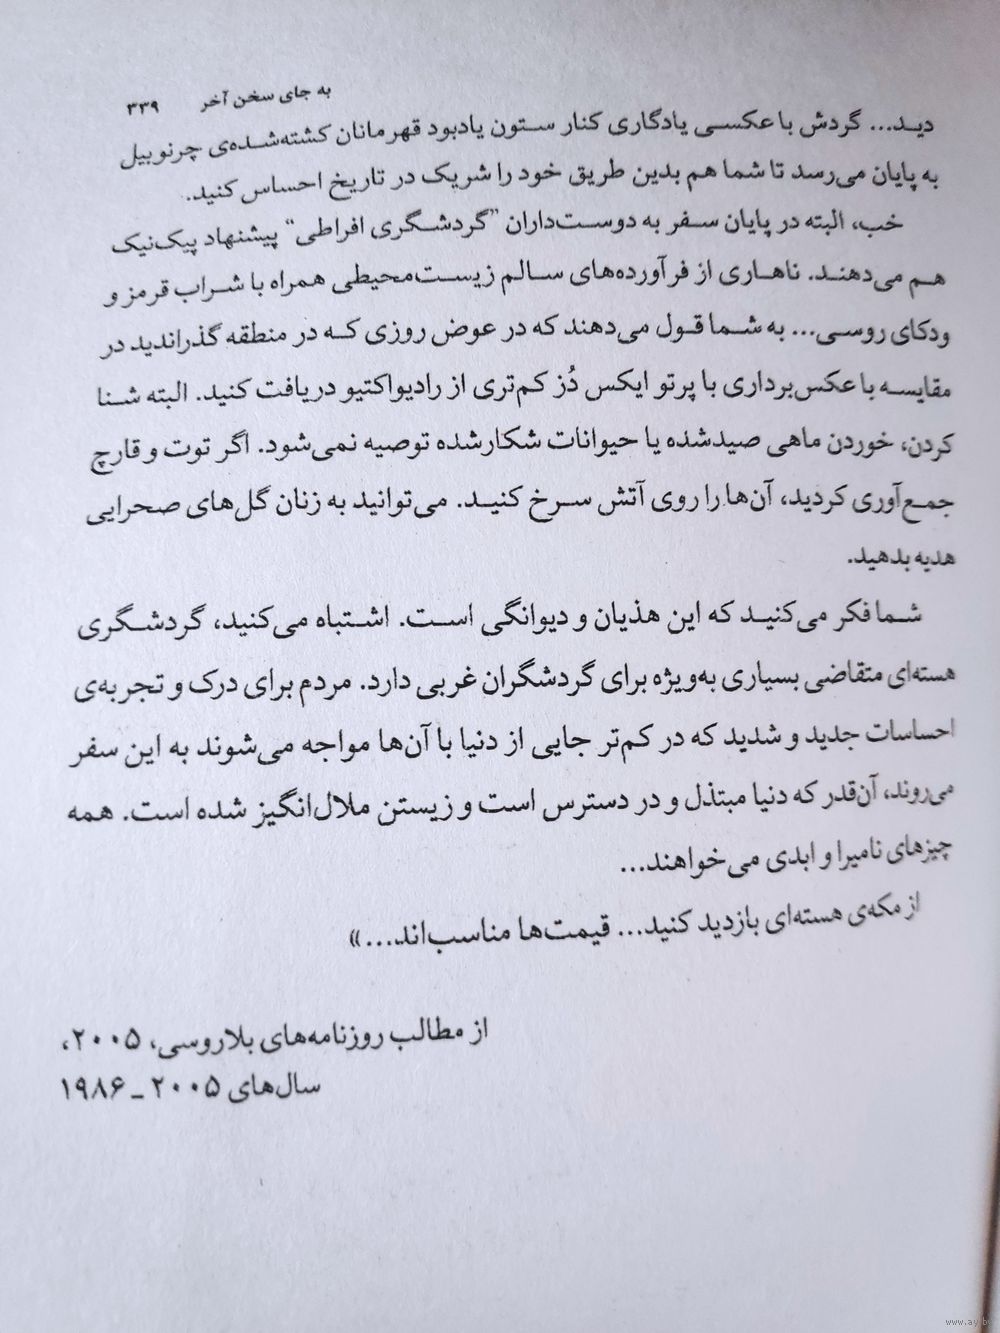 به جای سخن آخر ۳۳۹
دید... گردش با عکسی یادگاری کنار ستون یادبود قهرمانان کشته‌شده‌ی چرنوبیل
به پایان می‌رسد تا شما هم بدین طریق خود را شریک در تاریخ احساس کنید.
خب، البته در پایان سفر به دوست‌داران ”گردشگری افراطی“ پیشنهاد پیک‌نیک
هم می‌دهند. ناهاری از فرآورده‌های سالم زیست‌محیطی همراه با شراب قرمز و
ودکای روسی... به شما قول می‌دهند که در عوض روزی که در منطقه گذراندید در
مقایسه با عکس‌برداری با پرتو ایکس دُز کم‌تری از رادیواکتیو دریافت کنید. البته شنا
کردن، خوردن ماهی صیدشده یا حیوانات شکارشده توصیه نمی‌شود. اگر توت و قارچ
جمع‌آوری کردید، آن‌ها را روی آتش سرخ کنید. می‌توانید به زنان گل‌های صحرایی
هدیه بدهید.
شما فکر می‌کنید که این هذیان و دیوانگی است. اشتباه می‌کنید، گردشگری
هسته‌ای متقاضی بسیاری به‌ویژه برای گردشگران غربی دارد. مردم برای درک و تجربه‌ی
احساسات جدید و شدید که در کم‌تر جایی از دنیا با آن‌ها مواجه می‌شوند به این سفر
می‌روند، آن‌قدر که دنیا مبتذل و در دسترس است و زیستن ملال‌انگیز شده است. همه
چیزهای نامیرا و ابدی می‌خواهند...
از مکه‌ی هسته‌ای بازدید کنید... قیمت‌ها مناسب‌اند...»
از مطالب روزنامه‌های بلاروسی، ۲۰۰۵،
سال‌های ۲۰۰۵ ـ ۱۹۸۶